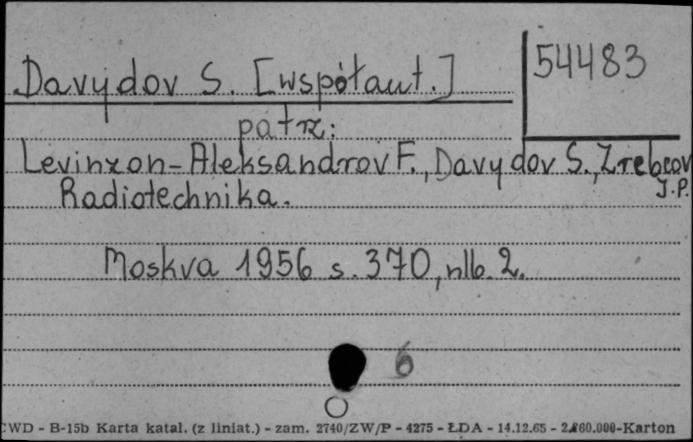 54483
Davydov S. [współaut.]
patrz:
Levinzon-Aleksandrov F., Davydov S., Zrebcov
J.P.
Radiotechnika.
Moskva 1956 s. 370, nlb. 2.
6
CWD - B-15b Karta katal. (z liniat.) - zam. 2740/ZW/P - 4275 - ŁDA - 14.12.65 - 2.860.000-Karton